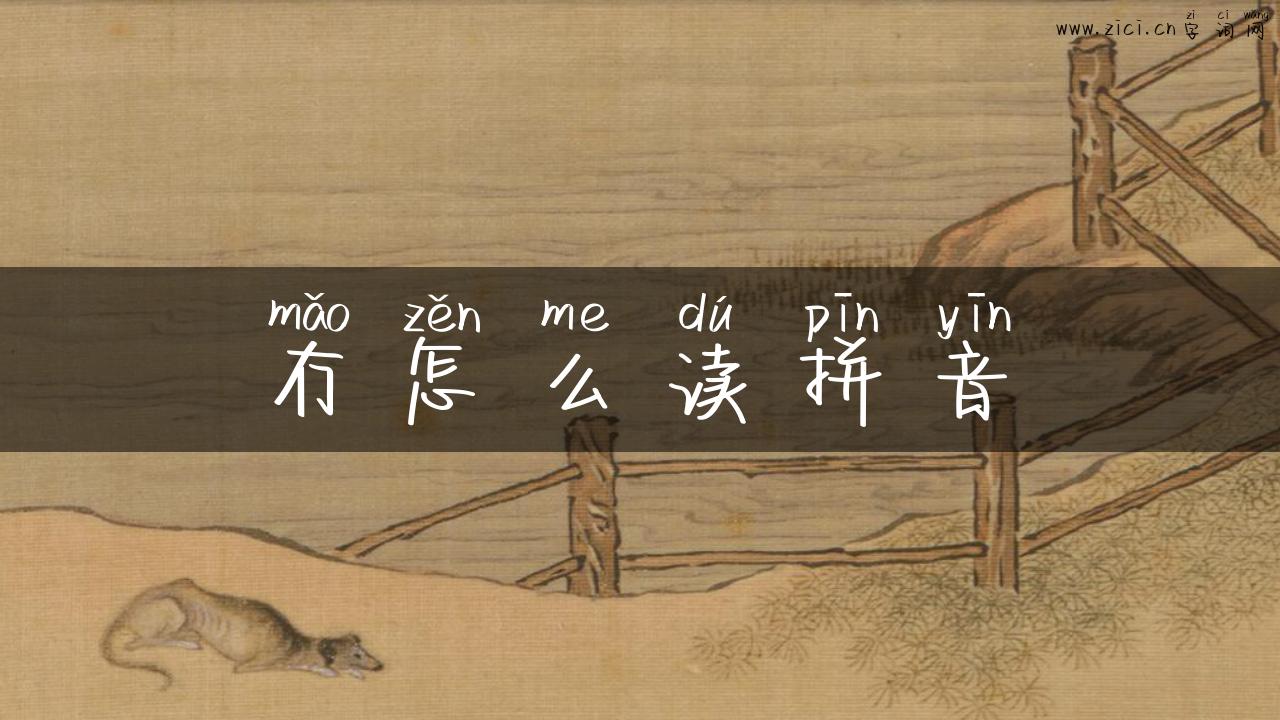 zì cí wǎng
www.zici.cn 字词网
mǎo zěn me dú pīn yīn
冇怎么读拼音